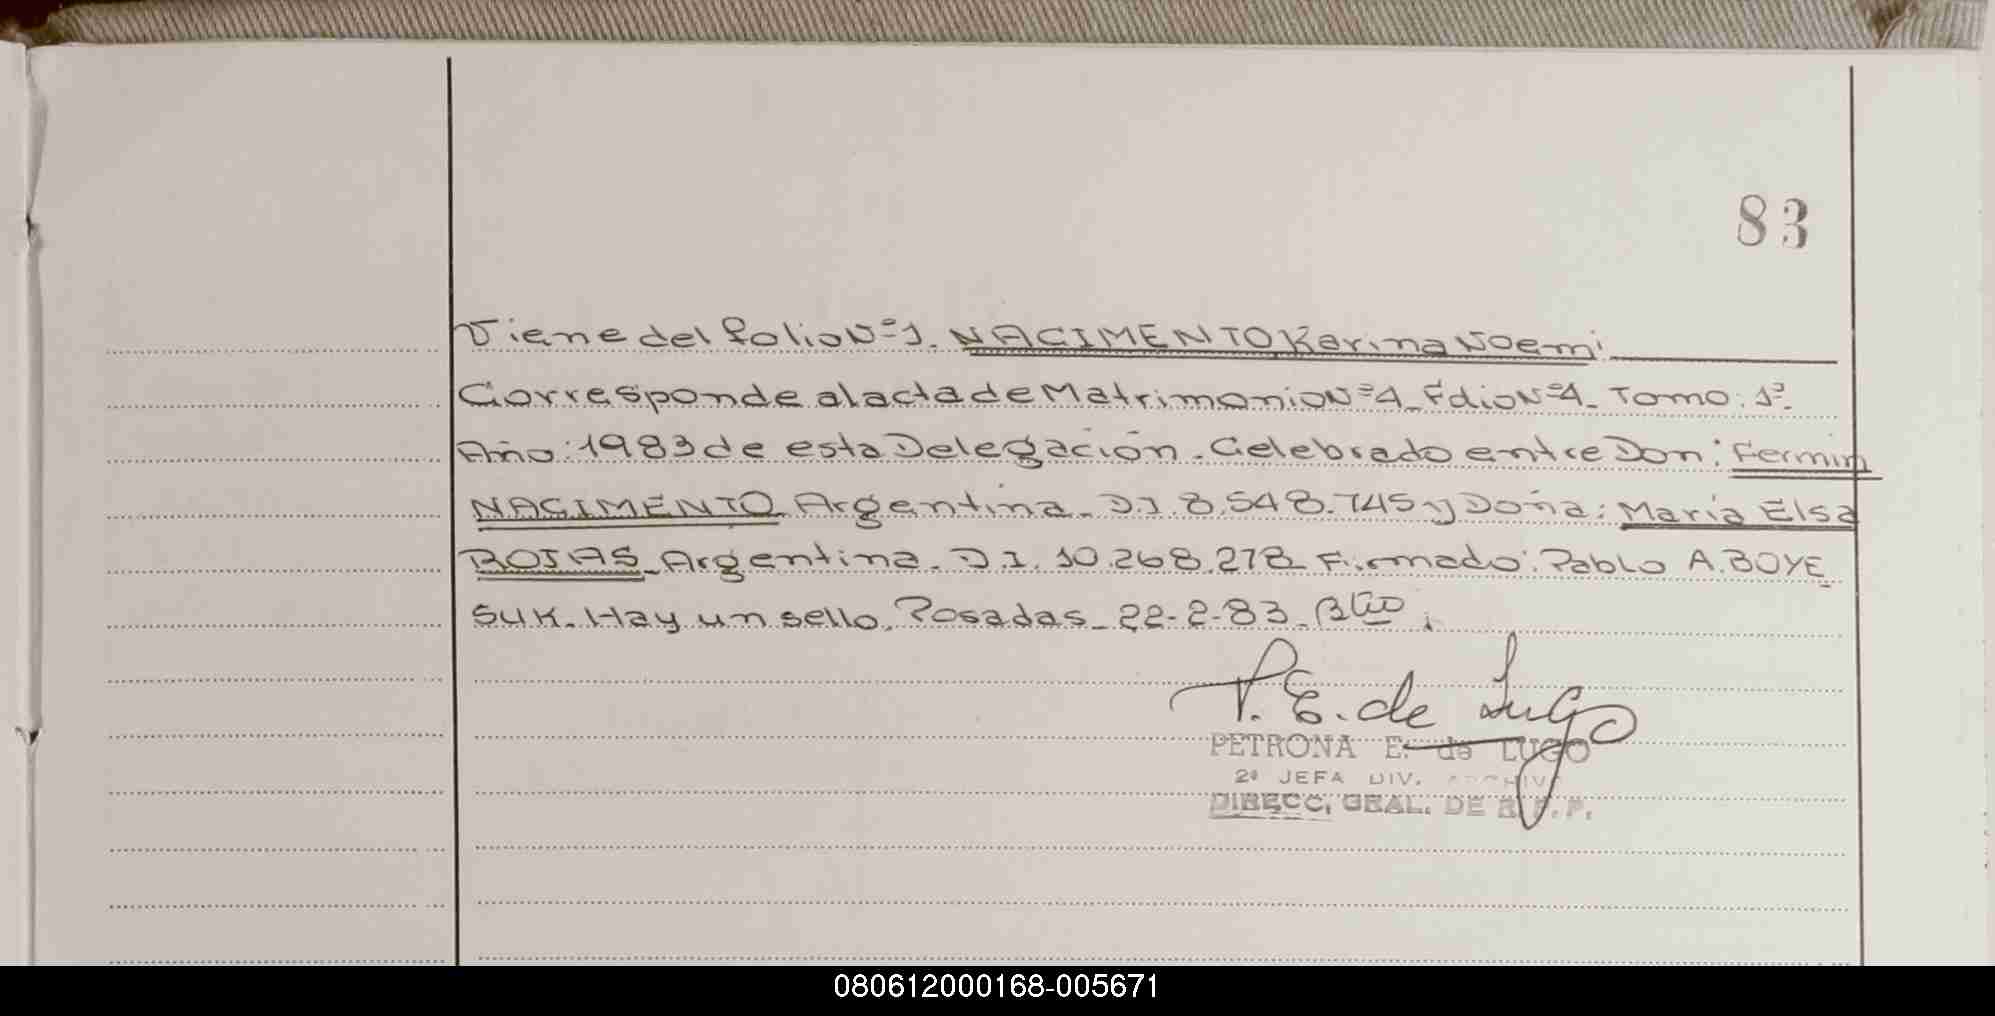 83
Viene del folio Nº 1. NACIMENTO Karina Noemi
Corresponde al acta de Matrimonio Nº 4 - Folio Nº 4 - Tomo: 1º.
Año: 1983 de esta Delegación. Celebrado entre Don: Fermin
NACIMENTO Argentina. D.I. 8.548.745 y Doña: Maria Elsa
ROJAS. Argentina. D.I. 10.268.278 Firmado: Pablo A. BOYE
SUK. Hay un sello. Posadas - 22-2-83.
P. E. de Lugo
PETRONA E. de LUGO
2ª JEFA DIV. ARCHIVO
DIRECC. GRAL. DE R. P. P.
080612000168-005671